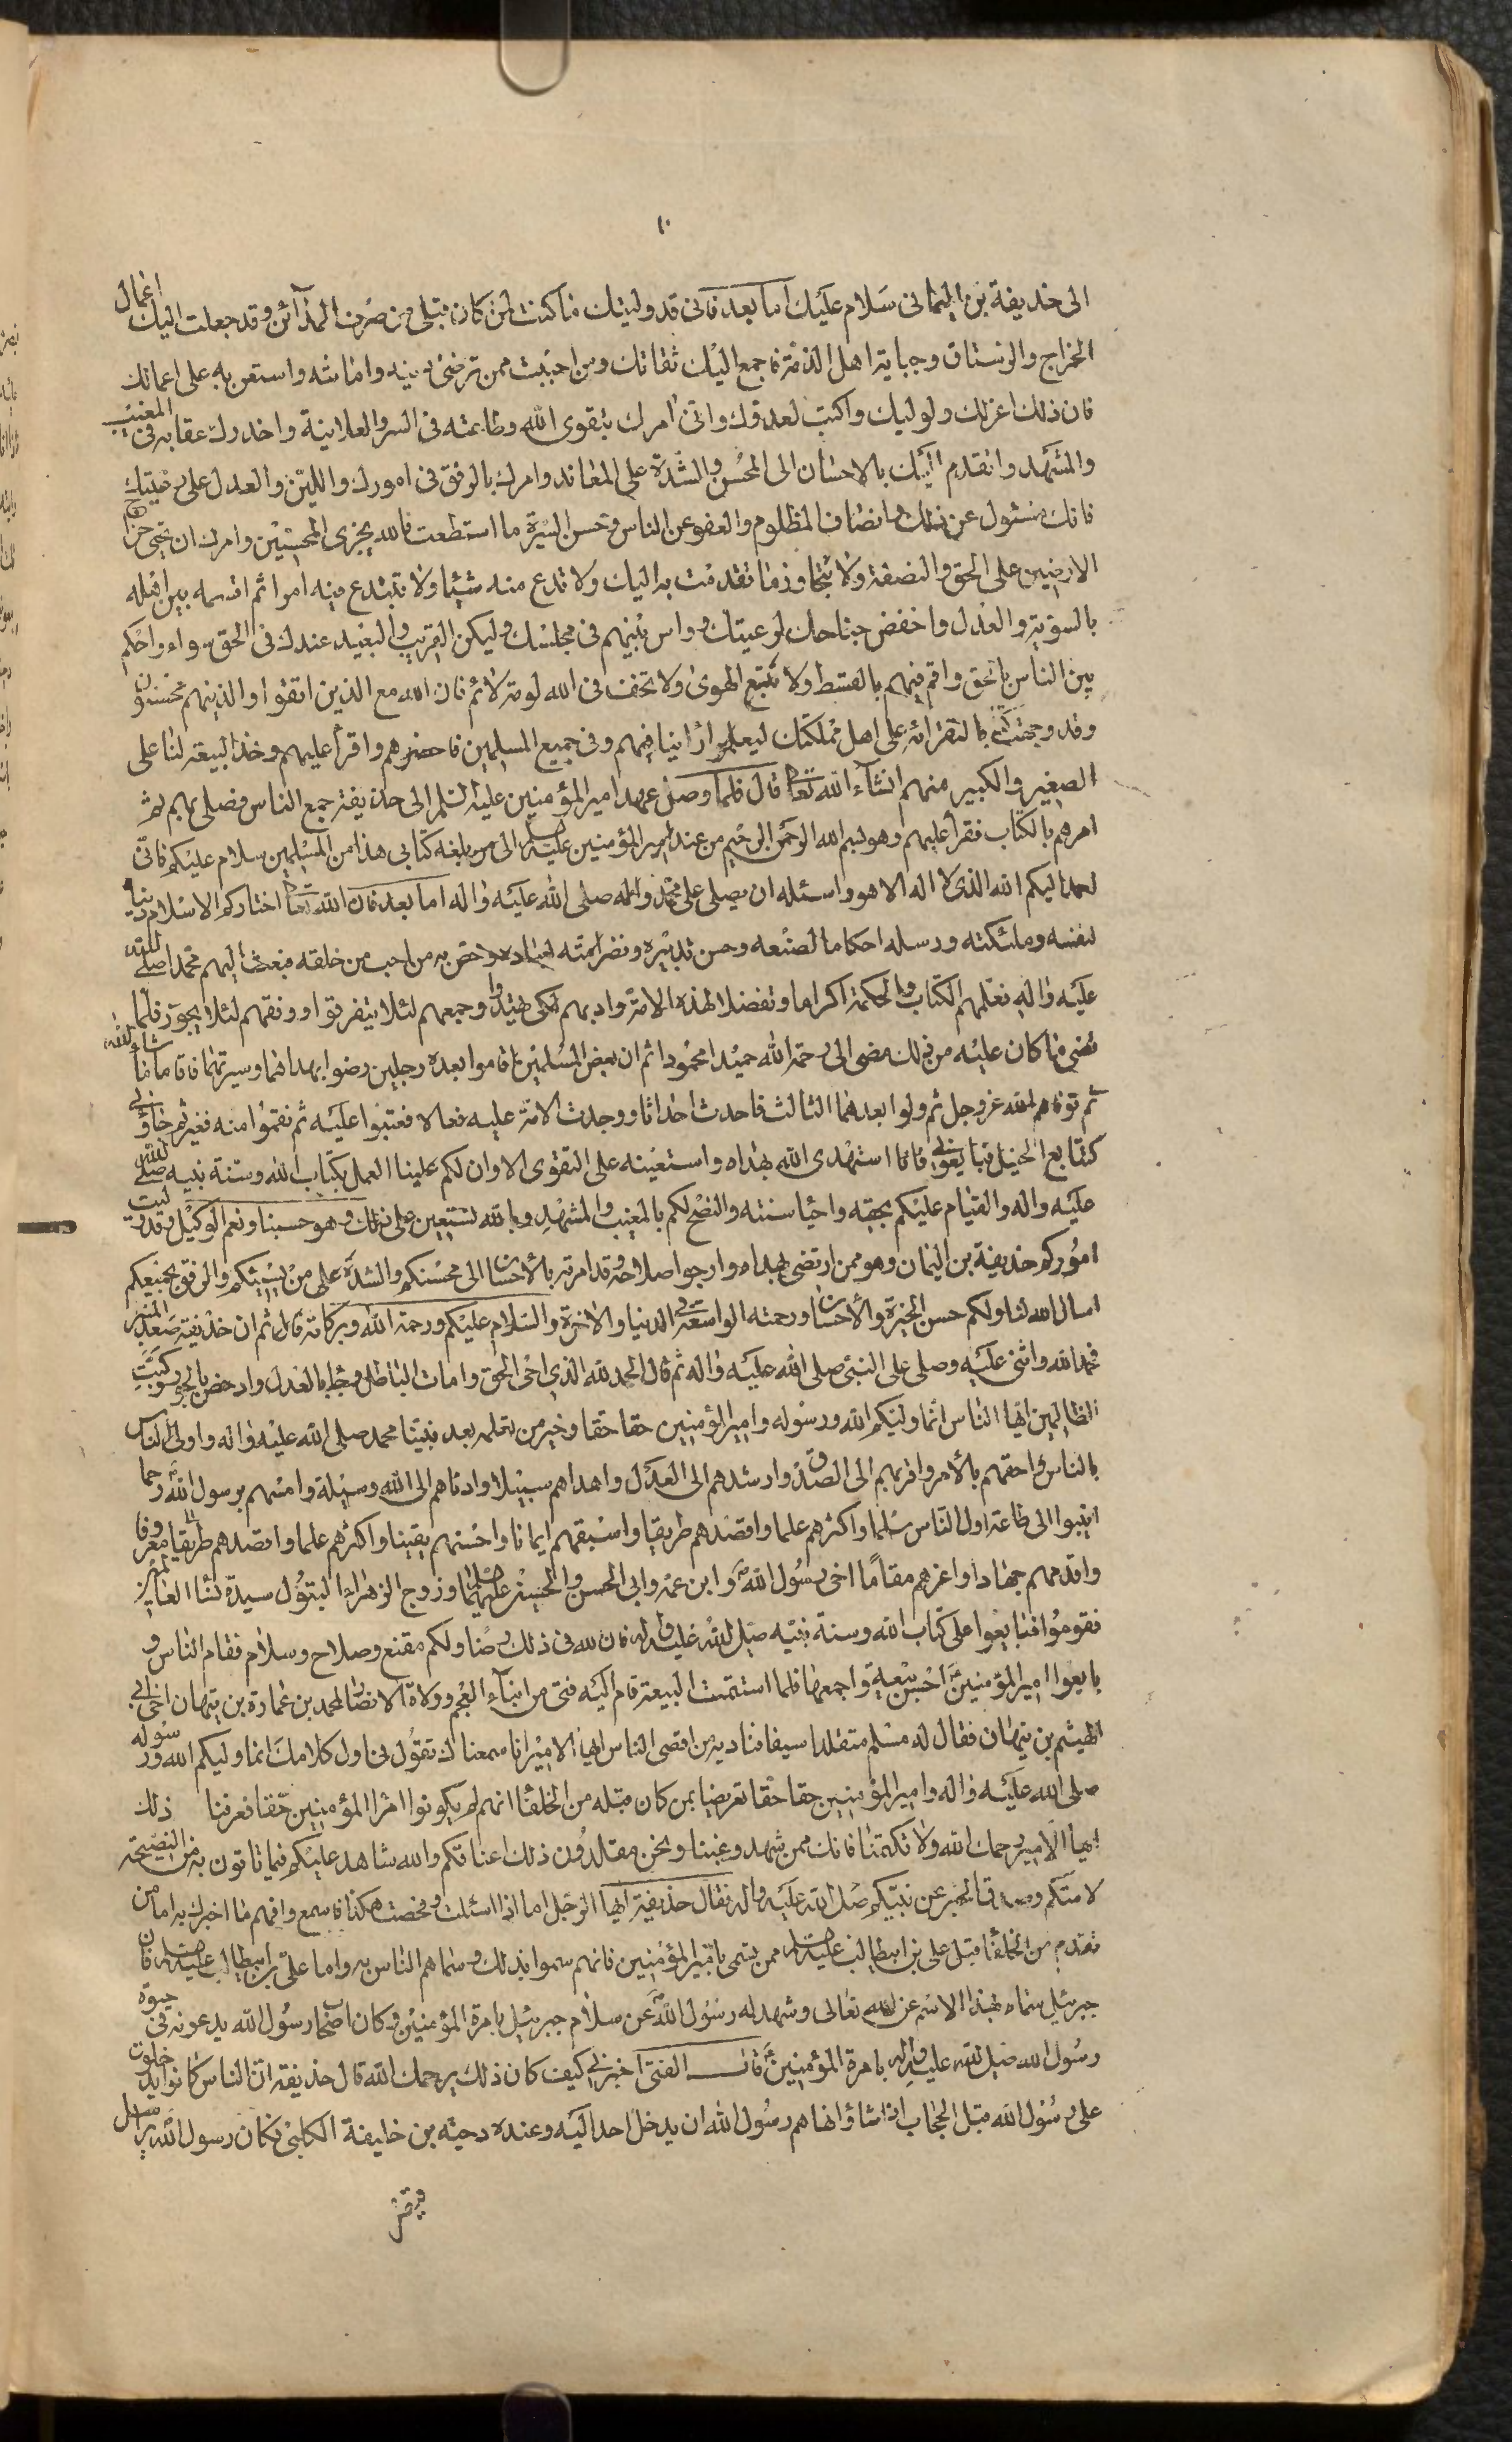 ١٠
الى حذيفة بن اليمانى سلام عليك اما بعد فانى قد وليتك ما كنت لمن كان قبلى من صرف المدآئن وقد جعلت اليك اعمال
الخراج والرستاق وجباية اهل الذمة فاجمع اليك ثقاتك ومن احببت ممن ترضى دينه وامانته واستعن به على اعمالك
فان ذلك اعز لك ولوليك واكبت لعدوك وانى امرك بتقوى الله وطاعته فى السر والعلانية واحذرك عقابه فى المغيب
والمشهد واتقدم اليك بالاحسان الى المحسن والشدة على المعاند وامرك بالرفق فى امورك واللين والعدل على رعيتك
فانك مسئول عن ذلك وانصاف المظلوم والعفو عن الناس وحسن السيرة ما استطعت فالله يجزى المحسنين وامرك ان تجبى خراج
الارضين على الحق والنصفة ولا تتجاوز ما تقدمت به اليك ولا تدع منه شيئا ولا تبتدع فيه امرا ثم اقسمه بين اهله
بالسوية والعدل واخفض جناحك لرعيتك وواس بينهم فى مجلسك وليكن القريب والبعيد عندك فى الحق سواء واحكم
بين الناس بالحق واقم فيهم بالقسط ولا تتبع الهوى ولا تخف فى الله لومة لائم فان الله مع الذين اتقوا والذينهم محسنون
وقد وجهت اليك كتابا لتقرائه على اهل مملكتك ليعلموا راينا فيهم وفى جميع المسلمين فاحضرهم واقرأ عليهم وخذ البيعة لنا على
الصغير والكبير منهم انشآء الله تعالى قال فلما وصل عهد امير المؤمنين عليه السلم الى حذيفة جمع الناس فصلى بهم ثم
امرهم بالكتاب فقرأ عليهم وهو بسم الله الرحمن الرحيم من عند امير المؤمنين عليه السلم الى من بلغه كتابى هذا من المسلمين سلام عليكم فانى
احمد اليكم الله الذى لا اله الا هو واسئله ان يصلى على محمد واله صلى الله عليه واله اما بعد فان الله تعالى اختاركم الاسلام دينا
لنفسه وملئكته ورسله احكاما لصنعه وحسن تدبيره ونظرا منه لعباده وخص به من احب من خلقه فبعث اليهم محمدا صلى الله
عليه واله فعلمهم الكتاب والحكمة اكراما وتفضلا لهذه الامة وادبهم لكى يهتدوا وجمعهم لئلا يتفرقوا ووفقهم لئلا يجوروا فلما
قضى ما كان عليه من ذلك مضى الى رحمة الله حميدا محمودا ثم ان بعض المسلمين اقاموا بعده رجلين رضوا بهداهما وسيرتهما فاقاما ما شاء الله
ثم توفاهم الله عز وجل ثم ولوا بعدهما الثالث فاحدث احداثا ووجدت الامة عليه فعالا فعتبوا عليه ثم نقموا منه فغيروا ثم جاؤنى
كتتابع الخيل فبايعونى فانا استهدى الله بهداه واستعينه على التقوى الا وان لكم علينا العمل بكتاب الله وسنة نبيه صلى الله
عليه واله والقيام عليكم بحقه واحيا سنته والنصح لكم بالمغيب والمشهد وبالله نستعين على ذلك وهو حسبنا ونعم الوكيل وقد وليت
اموركم حذيفة بن اليمان وهو ممن ارتضى بهداه وارجوا صلاحه وقد امرته بالاحسان الى محسنكم والشدة على من يسيئكم والرفق بجميعكم
اسال الله لنا ولكم حسن الخيرة والاحسان ورحمته الواسعة فى الدنيا والاخرة والسلام عليكم ورحمة الله وبركاته قال ثم ان حذيفة صعد المنبر
فحمد الله واثنى عليه وصلى على النبى صلى الله عليه واله ثم قال الحمد لله الذى احى الحق وامات الباطل وجاء بالعدل وادحض الجور وكبت
الظالمين ايها الناس انما وليكم الله ورسوله وامير المؤمنين حقا حقا وخير من نعلمه بعد نبينا محمد صلى الله عليه واله واولى الناس
بالناس واحقهم بالأمر واقربهم الى الصدق وارشدهم الى العدل واهداهم سبيلا وادناهم الى الله وسيلة وامسهم برسول الله رحما
انيبوا الى طاعة اول الناس سلما واكثرهم علما واقصدهم طريقا واسبقهم ايمانا واحسنهم يقينا واكثرهم علما واقصدهم طريقا معروفا
واقدمهم جهادا واعزهم مقاما اخى رسول الله وابن عمه وابى الحسن والحسين عليهما السلم وزوج الزهراء البتول سيدة نسا العالمين
فقوموا فبايعوا على كتاب الله وسنة نبيه صلى الله عليه واله فان لله فى ذلك رضا ولكم مقنع وصلاح وسلام فقام الناس و
بايعوا امير المؤمنين احسن بيعة واجمعها فلما استتمت البيعة قام اليه فتى من ابنآء العجم وولاة الانصار لمحمد بن عمارة بن تيهان اخى ابى
الهيثم بن تيهان فقال له مسلم متقلدا سيفا فناديه من اقصى الناس ايها الامير انا سمعناك تقول فى اول كلامك انما وليكم الله ورسوله
صلى الله عليه واله وامير المؤمنين حقا حقا تعريضا بمن كان قبله من الخلفا انهم لم يكونوا امرا المؤمنين حقا فعرفنا ذلك
ايها الامير رحمك الله ولا تكتمنا فانك ممن شهد وغبنا ونحن مقلدون ذلك اعناقكم والله شاهد عليكم فيما تاتون به من النصيحة
لامتكم وصدق الخبر عن نبيكم صلى الله عليه واله فقال حذيفة ايها الرجل اما اذا اسئلت وفحصت هكذا فاسمع وافهم ما اخبرك به اما من
تقدم من الخلفا قبل على بن ابيطالب عليه السلم ممن يسمى بامير المؤمنين فانهم سموا بذلك وسماهم الناس به واما على بن ابيطالب عليه السلم فان
جبرئيل سماه بهذا الاسم عن الله تعالى وشهد له رسول الله عن سلام جبرئيل بامرة المؤمنين وكان اصحاب رسول الله يدعونه فى حيوة
رسول الله صلى الله عليه واله بامرة المؤمنين قال الفتى اخبرنى كيف كان ذلك يرحمك الله قال حذيفة ان الناس كانوا يدخلون
على رسول الله قبل الحجاب اذا شاؤا فنهاهم رسول الله ان يدخل احد اليه وعنده دحية بن خليفة الكلبى فكان رسول الله يراسل
قيصر